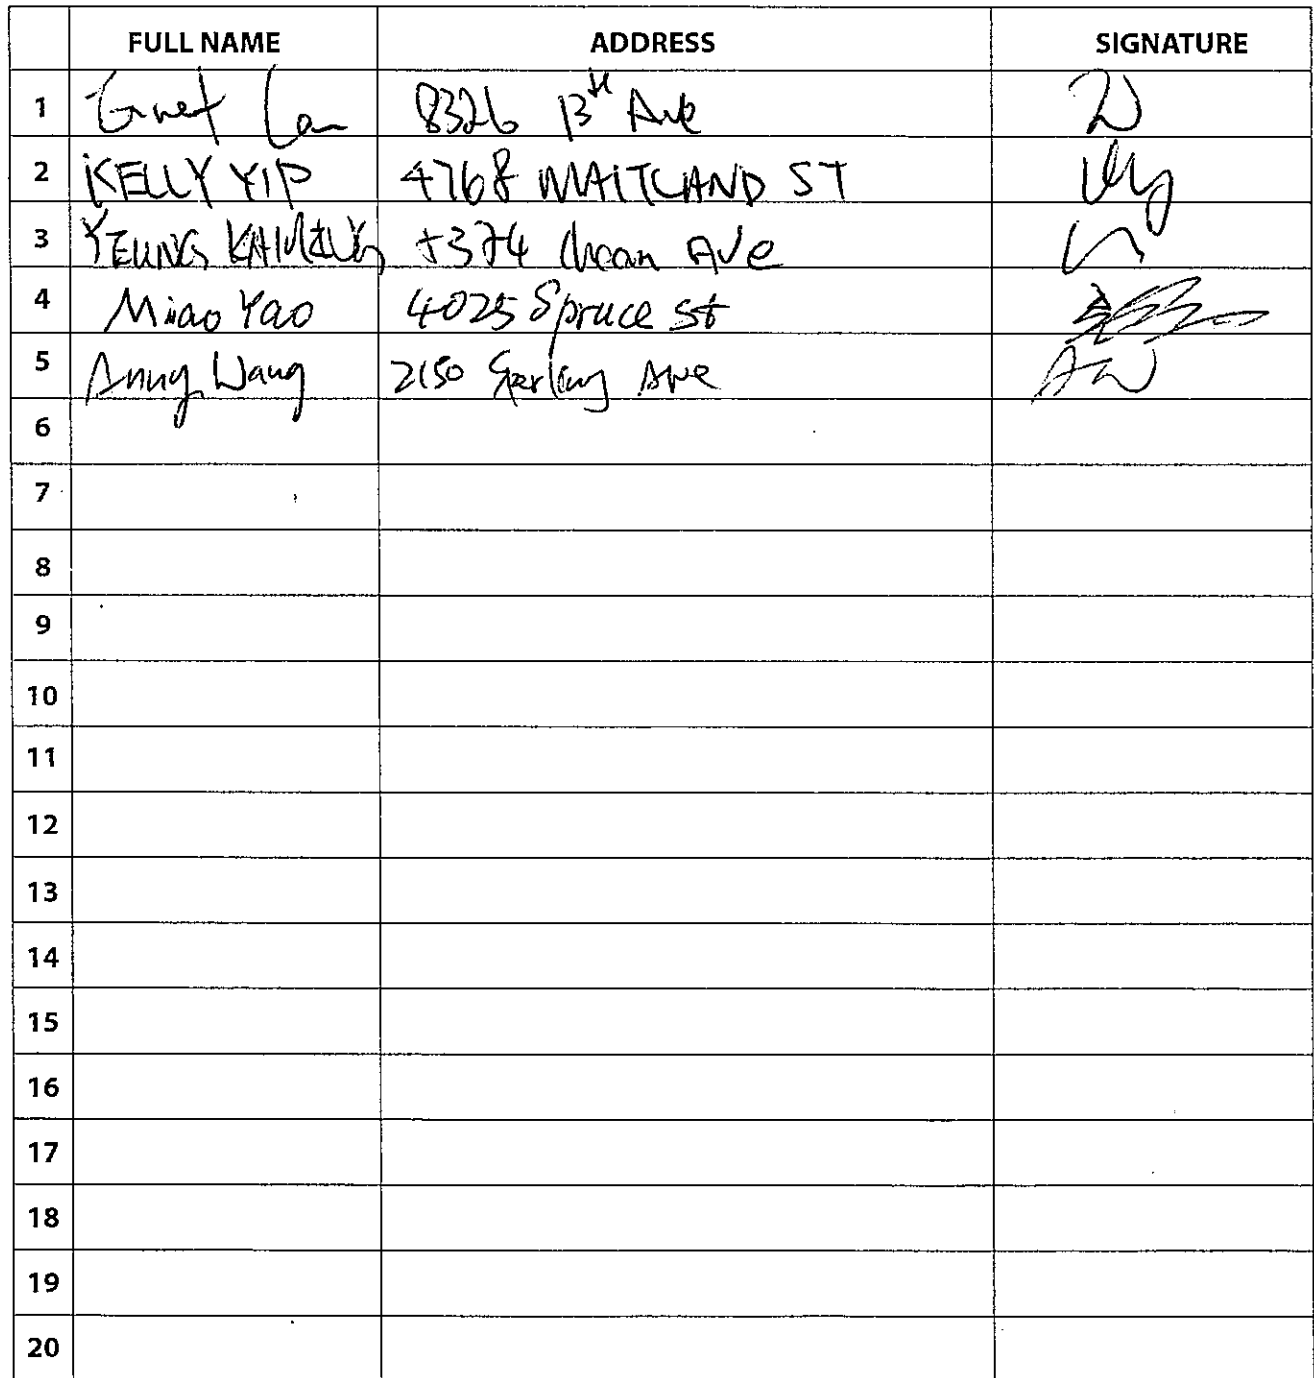 FULL NAME ADDRESS SIGNATURE
1 8326 13th Ave
2 KELLY YIP 4768 MAITLAND ST
3 YEUNG Ave
4 Miao Yao 4025 Spruce St
5 Wang 2150 Sperling Ave AW
6
7
8
9
10
11
12
13
14
15
16
17
18
19
20